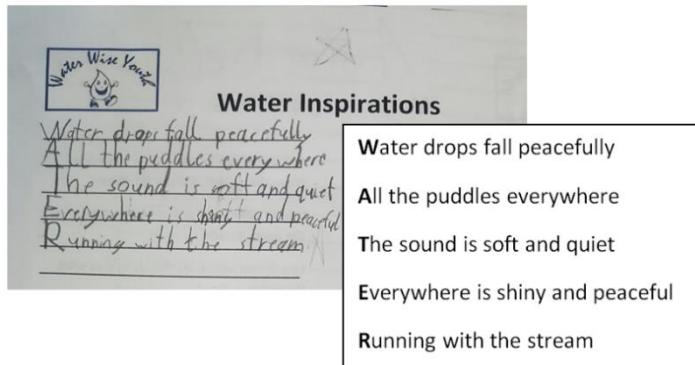 Water Wise Youth
Water Inspirations
Water drops fall peacefully
All the puddles everywhere
The sound is soft and quiet
Everywhere is shiny and peaceful
Running with the stream
Water drops fall peacefully
All the puddles everywhere
The sound is soft and quiet
Everywhere is shiny and peaceful
Running with the stream